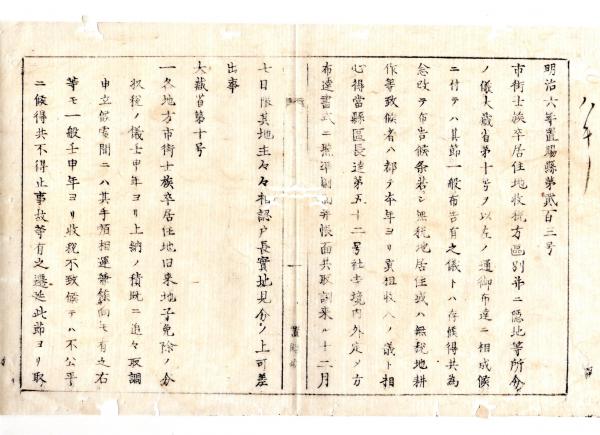 明治六年置賜縣第貳百三号
市街士族卒居住地收税方區別并ニ隠地等所分
ノ儀大蔵省第十号ヲ以左ノ通御布達ニ相成候
ニ付テハ其節一般布告有之儀トハ存候得共為
念改テ布告候条若シ無税地居住或ハ無税地耕
作等致候者ハ都テ本年ヨリ貢租收入ノ儀ト相
心得當縣區長達第五十二号社寺境内外定メ方
布達書式ニ照準 帳面共取調来ル十二月
七日限其地主々々札認戸長實地見分ノ上可差
出事
大蔵省第十号
一各地方市街士族卒居住地旧来地子免除ノ分
收税ノ儀壬申年ヨリ上納ノ積既ニ追々取調
申立候電間ニハ其手順相運兼候向モ有之右
等モ一般壬申年ヨリ收税不致候テハ不公平
ニ候得共不得止事故等有之遷延此節ヨリ取